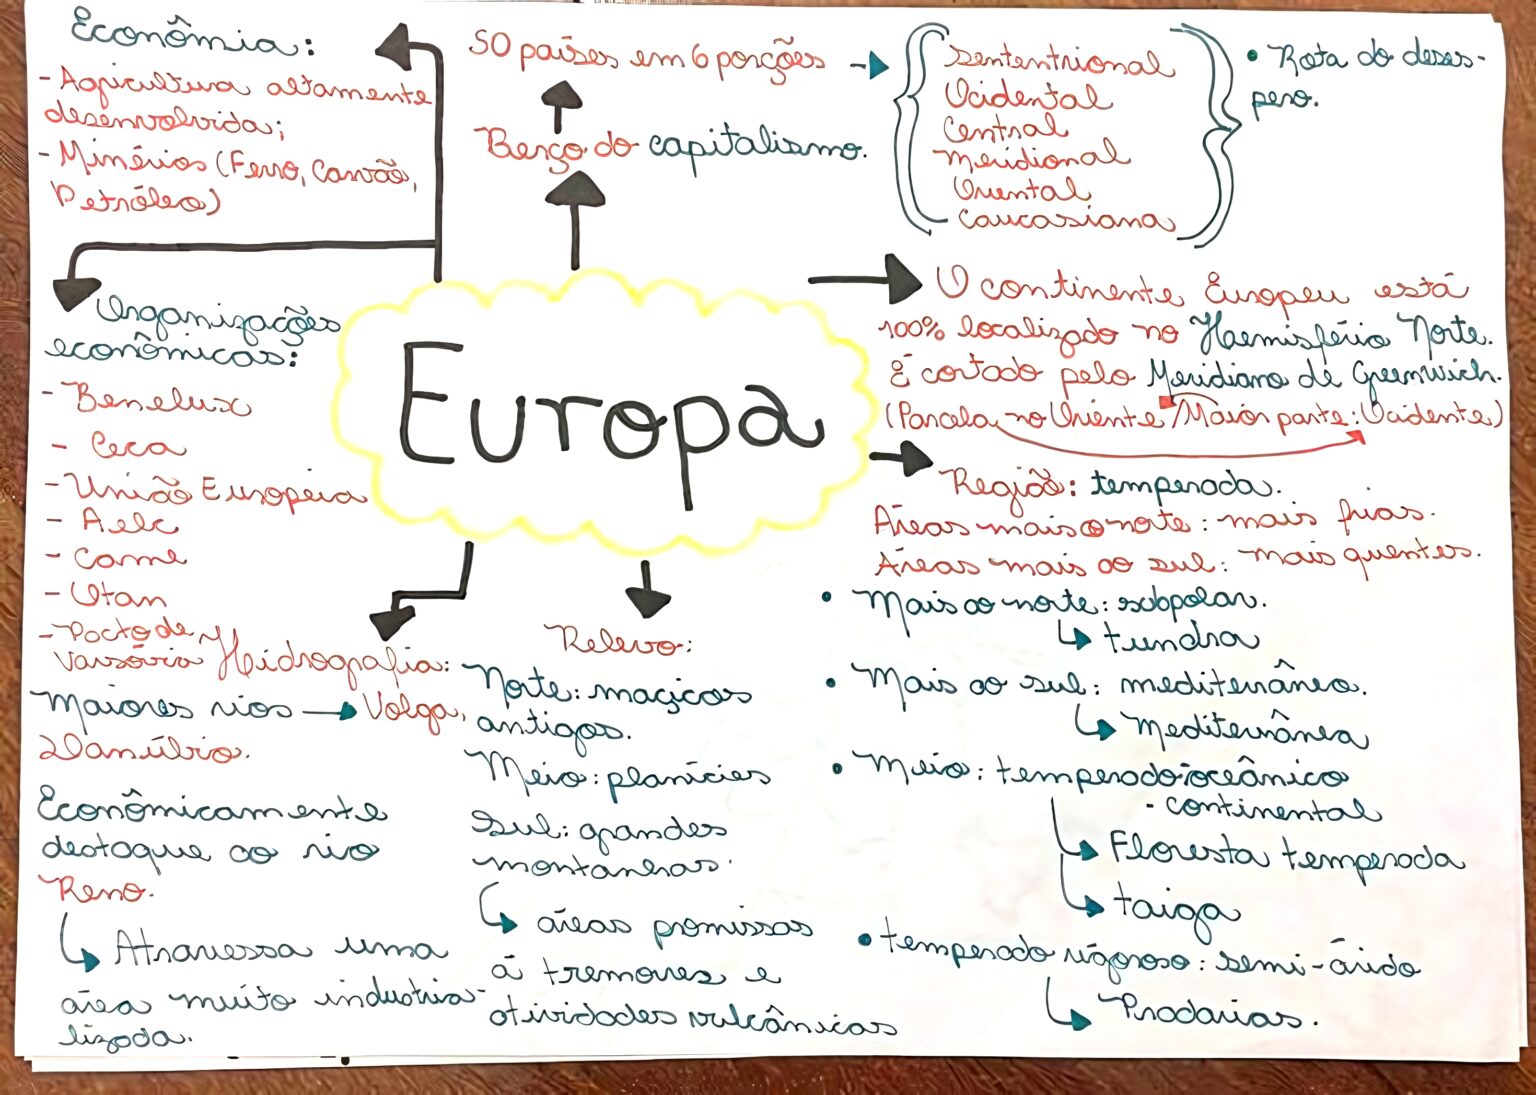 Econômia:
- Agricultura altamente
desenvolvida;
- Minérios (Ferro, Carvão,
Petróleo)
50 países em 6 porções
Berço do capitalismo.
Sententrional
Ocidental
Central
Meridional
Oriental
Caucasiana
• Rota do deses-
pero.
Organizações
econômicas:
- Benelux
- Ceca
- União Europeia
- Aelc
- Came
- Otan
- Pacto de
Varsóvia
Europa
O continente Europeu está
100% localizado no Haemisfério Norte.
É cortado pelo Meridiano de Greenwich.
(Parcela no Oriente / Maior parte: Ocidente)
Região: temperada.
Áreas mais ao norte: mais frias.
Áreas mais ao sul: mais quentes.
• Mais ao norte: subpolar.
tundra
• Mais ao sul: mediterrâneo.
Mediterrânea
• Meio: temperado-oceânico
- continental
Floresta temperada
taiga
• temperado rigoroso: semi-árido
Pradarias.
Hidrografia:
Maiores rios → Volga,
Danúbio.
Econômicamente
destaque ao rio
Reno.
Atravessa uma
área muito industria-
lizada.
Relevo:
Norte: maçicos
antigos.
Meio: planícies
Sul: grandes
montanhas.
áreas promissas
á tremores e
atividades vulcânicas